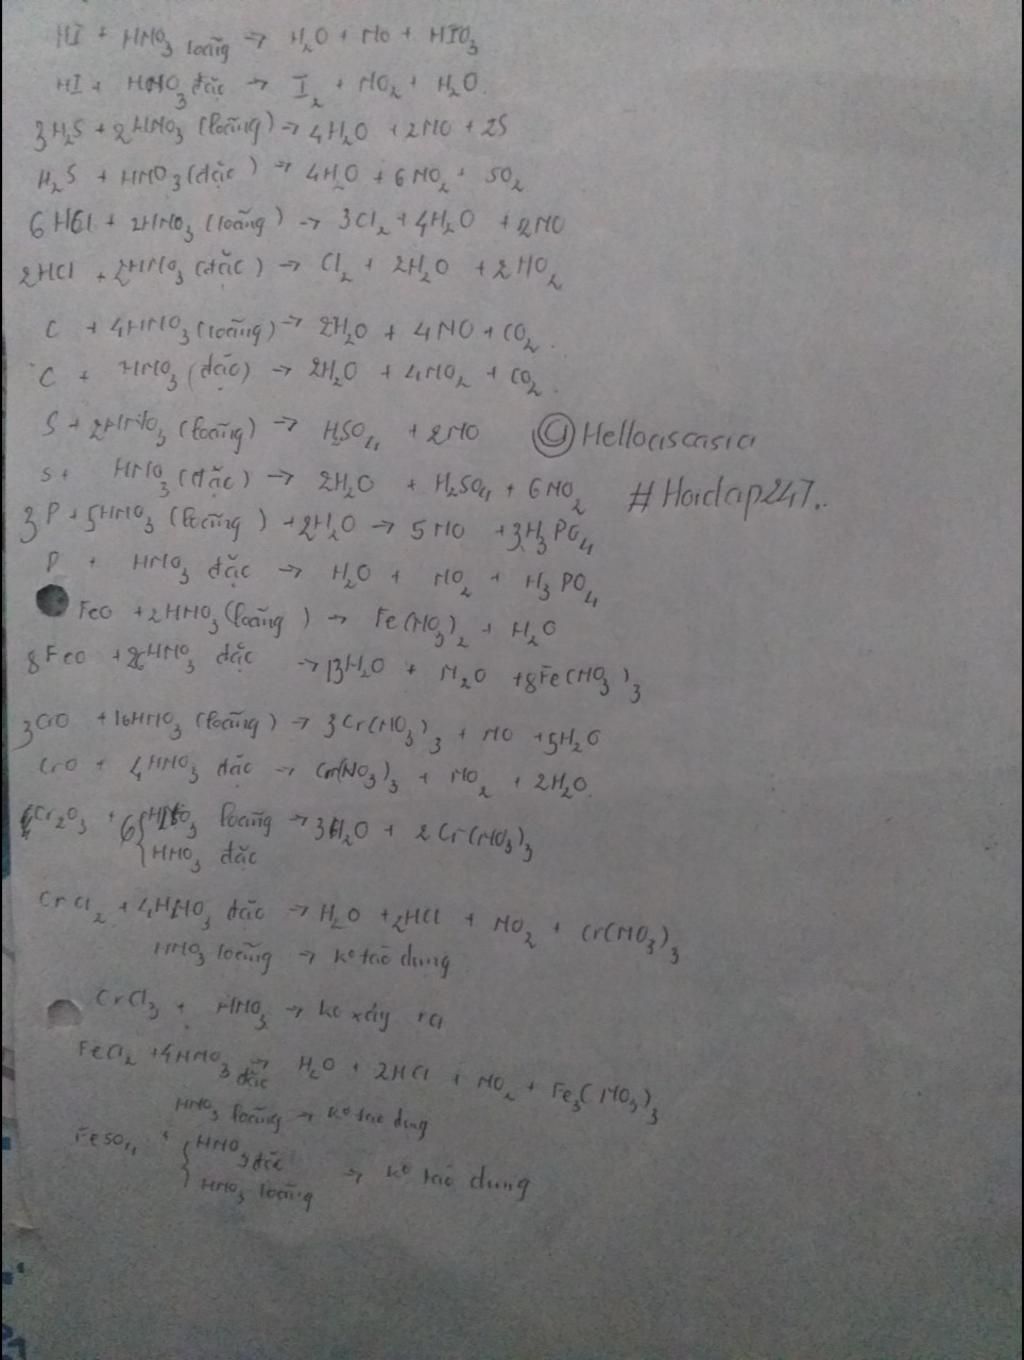 HI + HNO3 loãng → H2O + NO + HIO3
HI + HNO3 đặc → I2 + NO2 + H2O.
3H2S + 2HNO3 (loãng) → 4H2O + 2NO + 2S
H2S + HNO3 (đặc) → 4H2O + 6NO2 + SO2
6 HCl + 2HNO3 (loãng) → 3Cl2 + 4H2O + 2NO
2HCl + 2HNO3 (đặc) → Cl2 + 2H2O + 2NO2
C + 4HNO3 (loãng) → 2H2O + 4NO + CO2.
C + HNO3 (đặc) → 2H2O + 4NO2 + CO2.
S + 2HNO3 (loãng) → H2SO4 + 2NO
@Hellociscasia
S + HNO3 (đặc) → 2H2O + H2SO4 + 6NO2
#Hoidap247..
3P + 5HNO3 (loãng) + 2H2O → 5NO + 3H3PO4
P + HNO3 đặc → H2O + NO2 + H3PO4
FeO + 2HNO3 (loãng) → Fe(NO3)2 + H2O
8FeO + 26HNO3 đặc → 13H2O + N2O + 8Fe(NO3)3
3CrO + 10HNO3 (loãng) → 3Cr(NO3)3 + NO + 5H2O
CrO + 4HNO3 đặc → Cr(NO3)3 + NO2 + 2H2O.
Cr2O3 + 6{HNO3 loãng → 3H2O + 2Cr(NO3)3
HNO3 đặc
CrCl2 + 4HNO3 đặc → H2O + 2HCl + NO2 + Cr(NO3)3
HNO3 loãng → ko táo dung
CrCl3 + HNO3 → ko xảy ra
FeCl2 + 4HNO3 đặc → H2O + 2HCl + NO2 + Fe3(NO3)3
HNO3 loãng → ko táo dung
FeSO4 + {HNO3 đặc → ko táo dung
HNO3 loãng